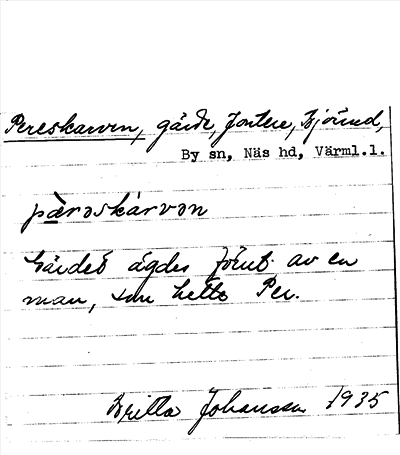 Pereskarven, gärde, Jontere, Bjömd,
By sn, Näs hd, Värml.l.
pærəskárvən
Gärdet ägdes förut av en
man, som hette Per.
Britta Johansson 1935